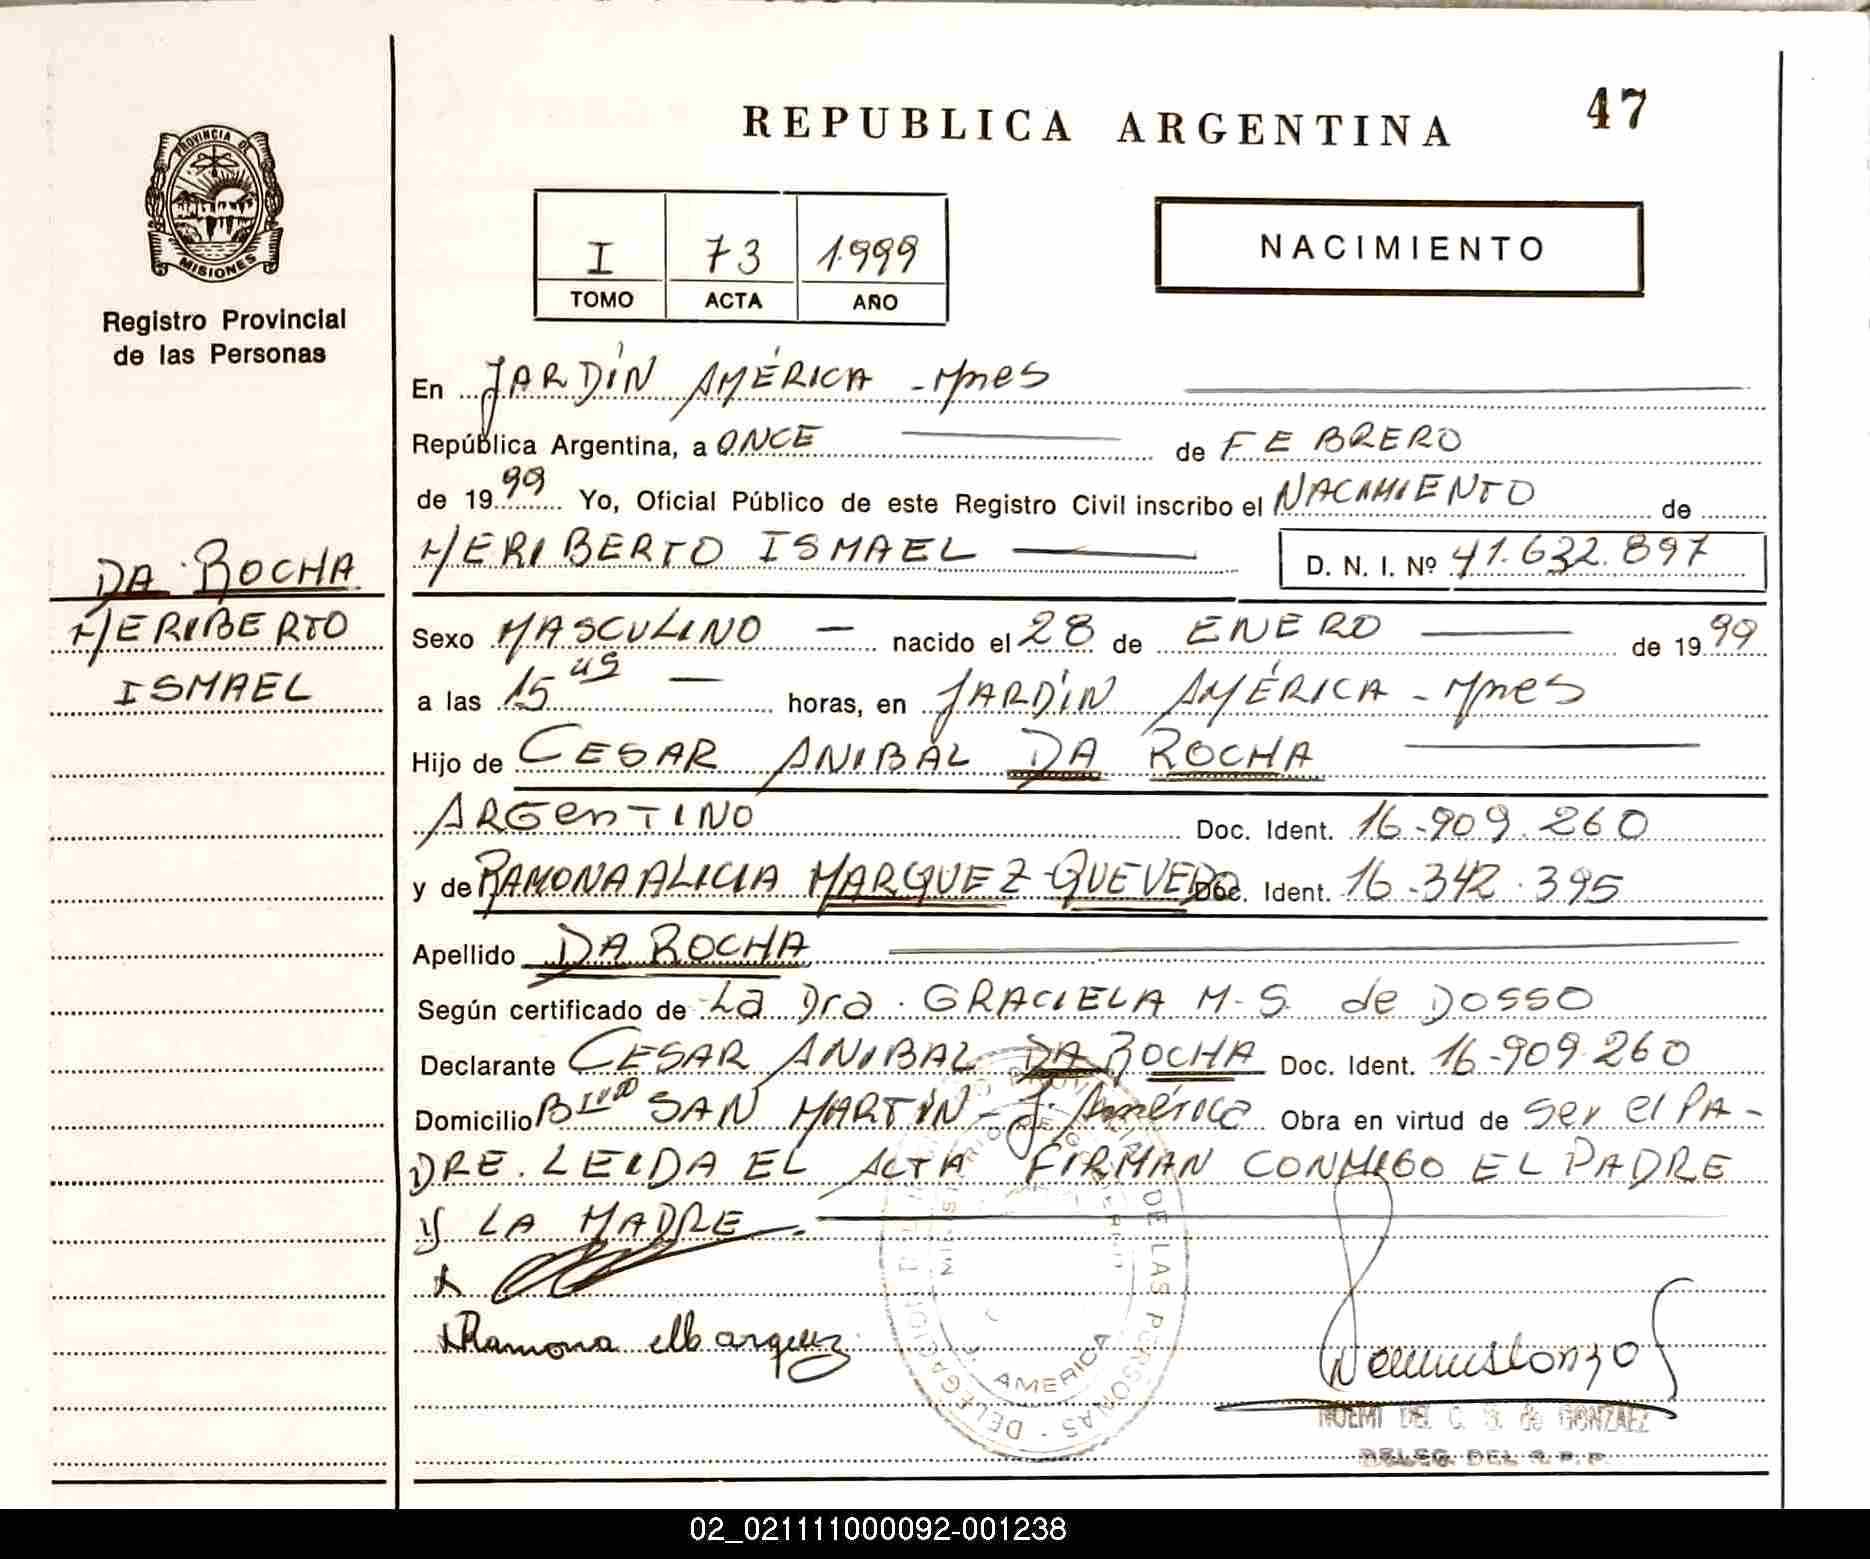 REPUBLICA ARGENTINA
47
PROVINCIA DE
MISIONES
Registro Provincial
de las Personas
I 73 1999
TOMO ACTA AÑO
NACIMIENTO
En JARDÍN AMÉRICA - Mnes
República Argentina, a ONCE de FEBRERO
de 1999 Yo, Oficial Público de este Registro Civil inscribo el NACIMIENTO de
HERIBERTO ISMAEL D. N. I. Nº 41.632.897
DA ROCHA
HERIBERTO
ISMAEL
Sexo MASCULINO - nacido el 28 de ENERO de 1999
a las 15 45 - horas, en JARDÍN AMÉRICA - Mnes
Hijo de CESAR ANIBAL DA ROCHA
ARGENTINO Doc. Ident. 16.909.260
y de RAMONA ALICIA MARQUEZ QUEVEDO Doc. Ident. 16.342.395
Apellido DA ROCHA
Según certificado de La Dra. GRACIELA M. S. de DOSSO
Declarante CESAR ANIBAL DA ROCHA Doc. Ident. 16.909.260
Domicilio SAN MARTIN - J. América Obra en virtud de ser el PA-
DRE. LEIDA EL ACTA FIRMAN CONMIGO EL PADRE
y LA MADRE.
Ramona Marquez
DE LAS PERSONAS · DELEGACION
AMERICA
NOEMI DEL C. S. de GONZALEZ
DELEG. DEL R. P. P.
02_021111000092-001238